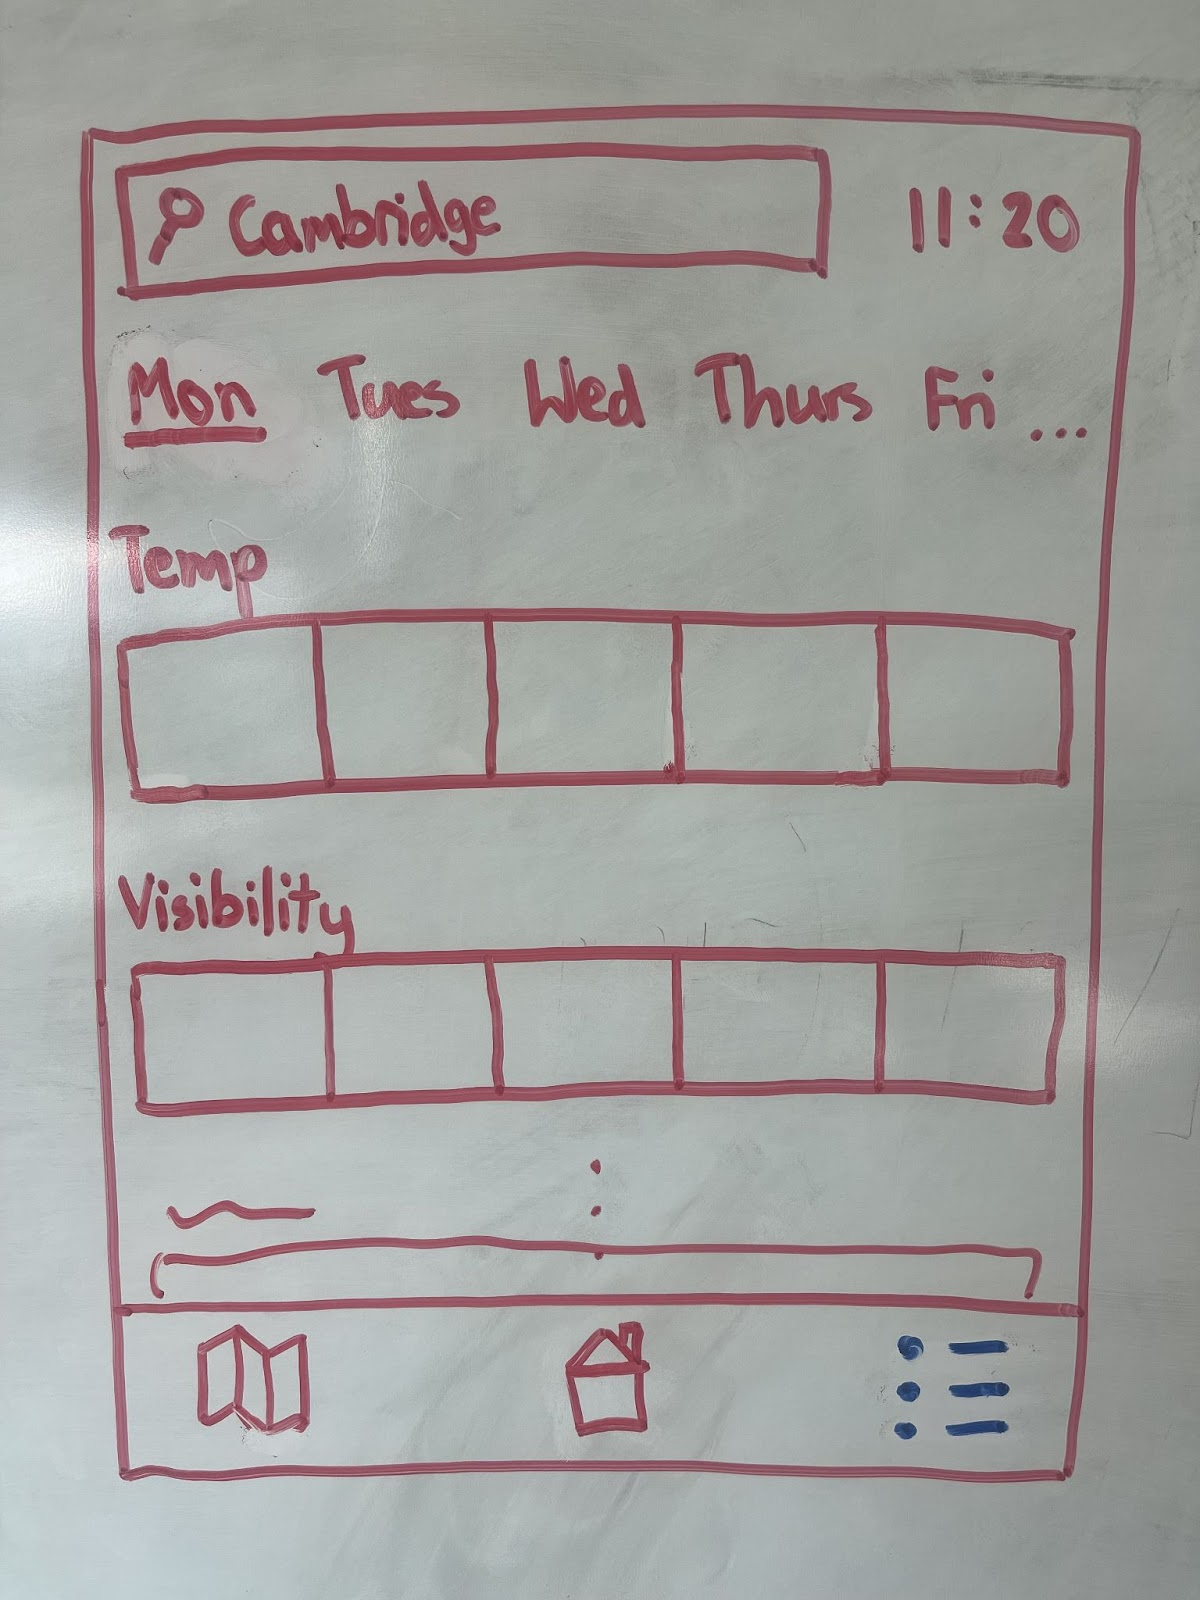 Cambridge 11:20
Mon Tues Wed Thurs Fri ...
Temp
Visibility